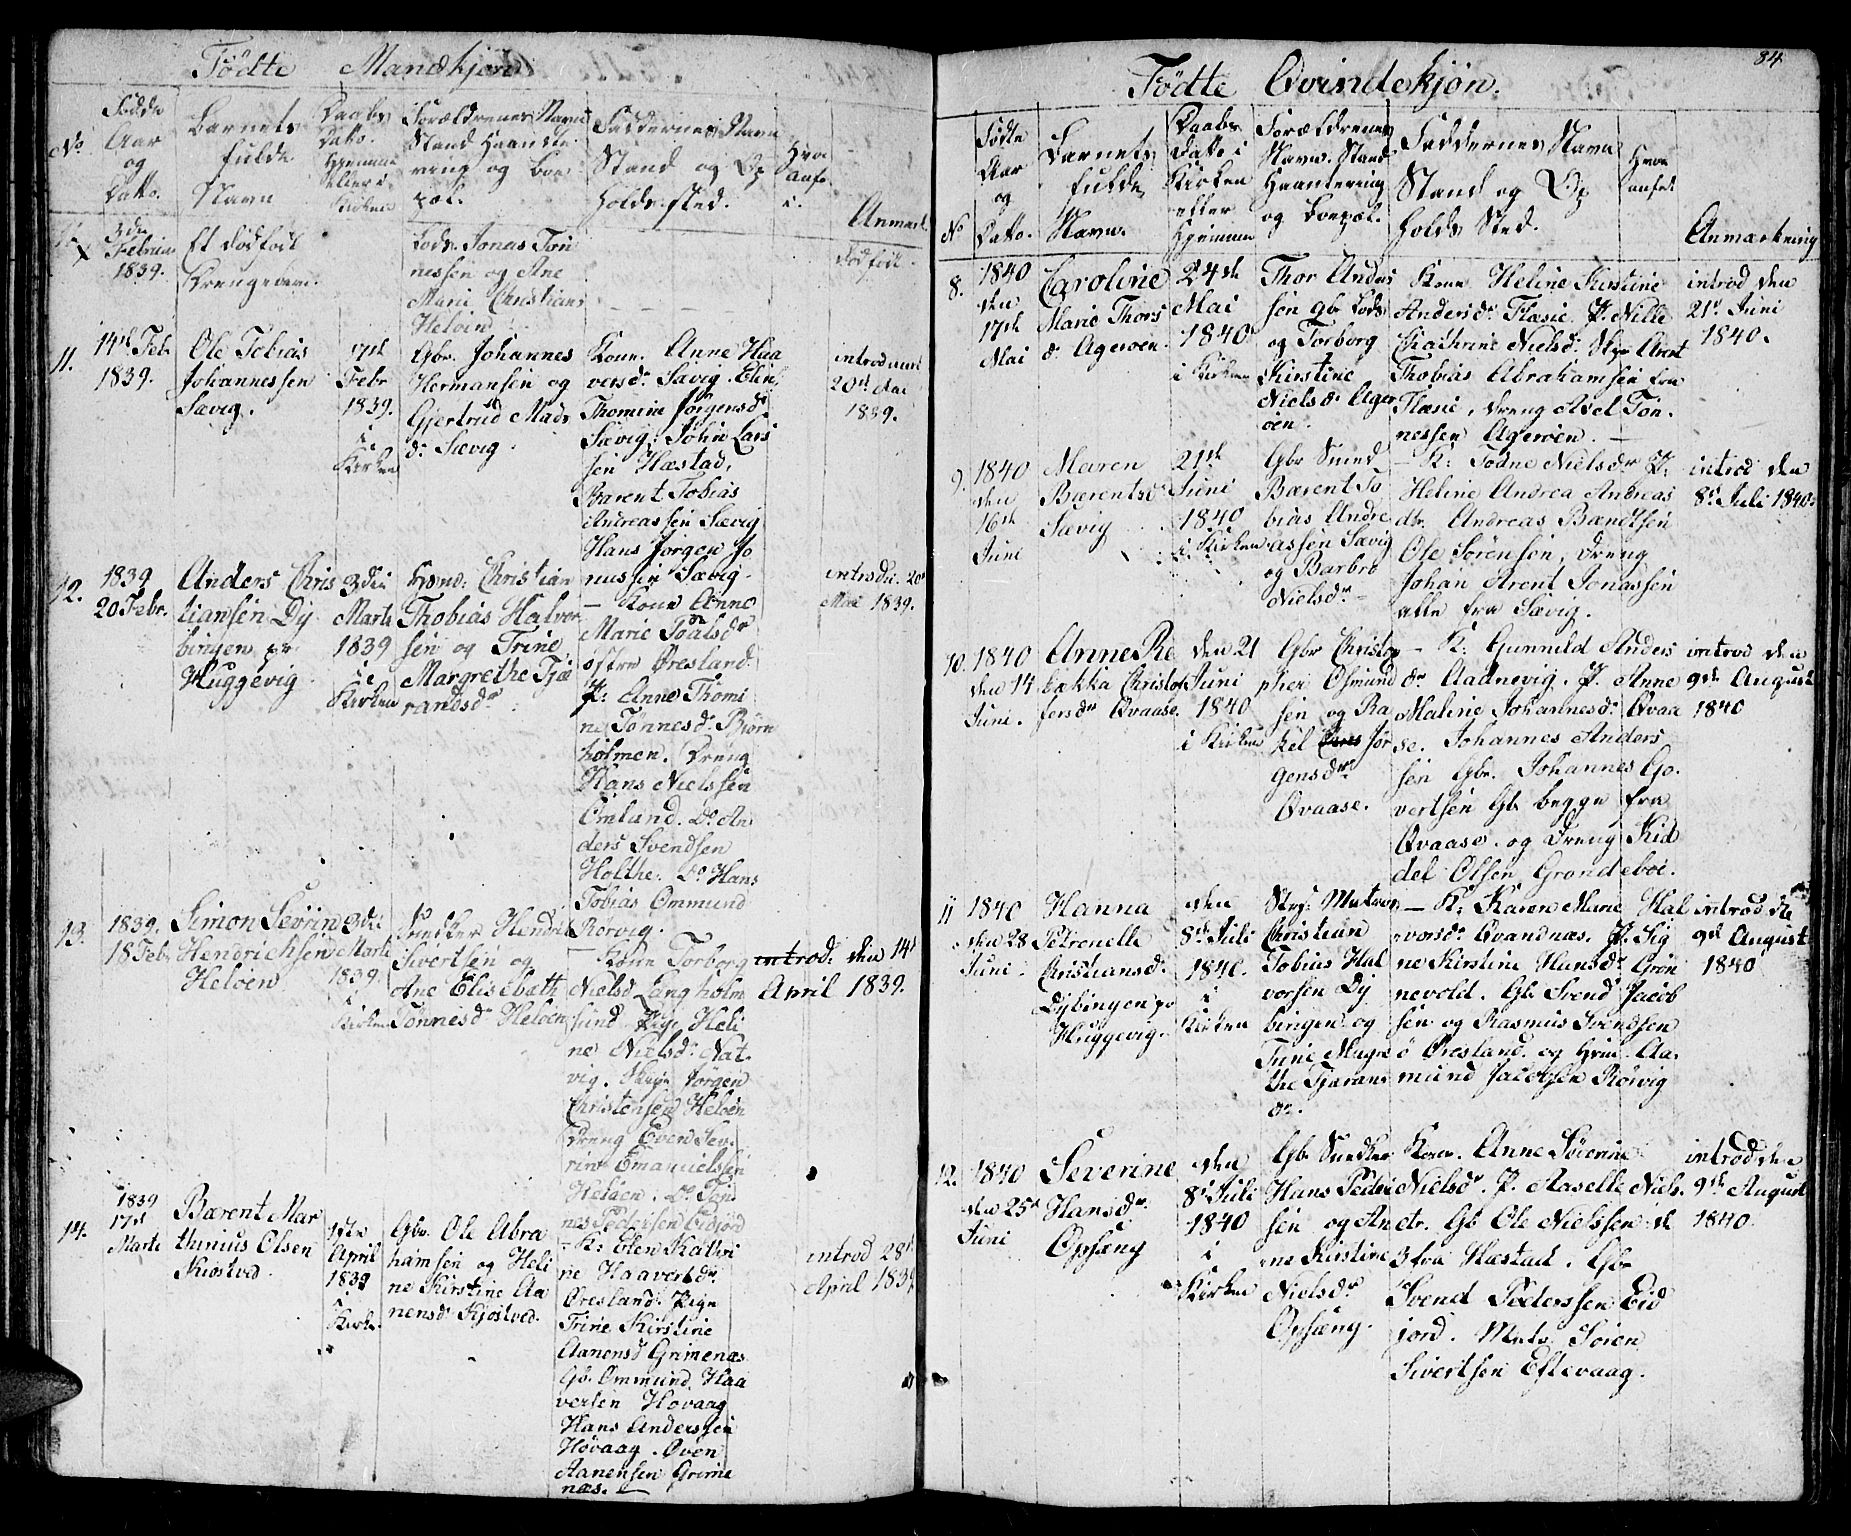 Födte Mandkjøn
No
Födde
Aar
og
Datto.
Barnets
fulde
Navn
Daabs
Datto.
Hjemme
eller i
Kirken
Forældrenes Navn
Stand Haandte
ring og Boe
pæl.
Faddernes Navn
Stand og Op
holdssted.
Anmærk.
X
3die
Februar
1839.
Et dödfödt
Drengebarn.
Lods. Jonas Tön
nessen og Ane
Marie Christians
Heløen
Dödfödt.
11.
14de Feb.
1839.
Ole Tobias
Johannessen
Sævig.
17de
Febr
1839.
i
Kirken
Gbr. Johannes
Hermansen og
Gjertrud Mads
dr Sævig.
Kone. Anne Haa
versdr. Sævig. Elin
Thomine Jørgensdr
Sævig. John Lars
sen Hæstad,
Barent Tobias
Andreassen Sævig
Hans Jørgen Jo
nussen Sævig.
introd
20de Mai
1839.
12.
1839
20 Febr.
Anders Chris
tiansen Dy
bingen pr
Huggevig
3die
Marts
1839
i
Kirken
Huusmd: Christian
Thobias Halvor
sen og Trine
Margrethe Tjæ
randsdr
- Kone Anne
Marie Poalsdr
østre Øresland.
P: Anne Thomi
ne Tönnesdr. Biörn
holmen. Dreng
Hans Nielssen
Omland. Do An
ders Svendsen
Holthe. Do Hans
Tobias Ommund
Rörvig.
introd: 20de
Mai 1839.
13.
1839.
18 Feb.
Simon Sevrin
Hendrichsen
Heløen
3die
Marts
1839.
i
Kirken
Snedker Hendrik
Sivertsen og
Ane Elisebæth
Tönnesdr Heløen
- Kone Torborg
Nielsd. Langholm
sund. Pige Heli
ne Nielsdr. Nat
vig. Jörgen
Christensen Heløen
Dreng Even Sev
rin Emanuelssen
Heløen. Do Tön
nes Pedersen Eidjord
introd: den 14de
April 1839.
14.
1839
17de
Marts
Bærent Mar
thinius Olsen
Kiöstved.
1ste
April
1839
i
Kirke.
Gbr. Ole Abra
hamsen og Heli
ne Kirstine Aa
nensdr Kjöstved.
- K: Elen Kathri
ne Haaversdr.
Øresland. Pige
Trine Kirstine
Aanensd Grimenæs
Gb. Ommund Haa
versen Hovaag
Hans Anderssen
Hövaag. Oven
Aanensen Grime
næs.
introd 28de
April 1839
84
Födte Qvindekjön.
No
Födte
Aar
og
Datto.
Barnets
fulde
Navn.
Daabs
Datto i
Kirken
eller
Hjemme
Forældrenes
Navn. Stand
Haantering
og Boepæl.
Faddernes Navn
Stand og Op
holds Sted.
Hvor
anført
Anmærkning
8.
1840
den
17de
Mai
Caroline
Marie Thors
dr Agerøen.
24de
Mai
1840
i Kirken
Thor Anders
sen gbr Lods
og Torborg
Kirstine
Nielsdr Ager
øen.
Kone Heline Kirstine
Andersdr Flæsie. P. Nille
Chathrine Nielsdr. Arent
Thobias Abrahamsen fra
Flæsie, dreng Axel Tön
nessen Agerøen. -
introd den
21de Juni
1840.
9.
1840
den
16de
Juni
Maren
Bærentsdr
Sævig
21de
Juni
1840
i Kirken
Gbr Smed
Bærent To
bias Andre
assen Sævig
og Barbro
Nielsdr
- K: Tödne Nielsdr P:
Heline Andrea Andreas
dtr. Andreas Bændtsen
Ole Sörensen, Dreng
Johan Arent Jonassen
alle fra Sævig.
introd den
8de Juli 1840.
10.
1840
den 14
Juni.
Anne Re
bækka Christof
fersdr Qvaase.
den 21
Juni
1840
i Kirken
Gbr Christop
pher Osmund
sen og Ra
kel Jör
gensdr
Qvaase.
- K: Gunnild Anders
dr Aadnevig. P. Anne
Maline Johannesdr. Qvaa
se. Johannes Anders
sen Gbr. Johannes Go
vertsen Gb begge fra
Qvaase. og Dreng Kid
del Olsen Grandeboe.
introd den
9de August
1840
11
1840
den 28
Juni.
Hanna
Petronelle
Christiansdr.
Dybingen pr
Huggevig.
den
8de Juli
1840.
i
Kirken
Matros
Christian
Tobias Hal
vorsen Dy
bingen og
Trine Magre
the Tjærans
dr.
- K: Karen Marie Hal
vorsdr. Qvandnæs. P. Sig
ne Kirstine Hansdr Grön
nevold. Gb. Svend Jacob
sen og Rasmus Svendsen
ö Øresland. og Aa
mund Jacobsen Rörvig
introd die
9de August
1840
12.
1840
den 25de
Juni
Severine
Hansdr.
Opsæng
den
8de Juli
1840
i
Kirken
Gb. Snedker
Hans Peder
sen og An
ne Kirstine
Nielsdr
Opsæng.
Kone. Anne Söierine
Nielsdr. P. Aaselle Niels
dr. Gb Ole Nielssen de
3 fra Hæstad. Gbr
Svend Pederssen Eid
jord. Matr. Sören
Sivertsen Eftevaag.
introd den
9de August
1840.